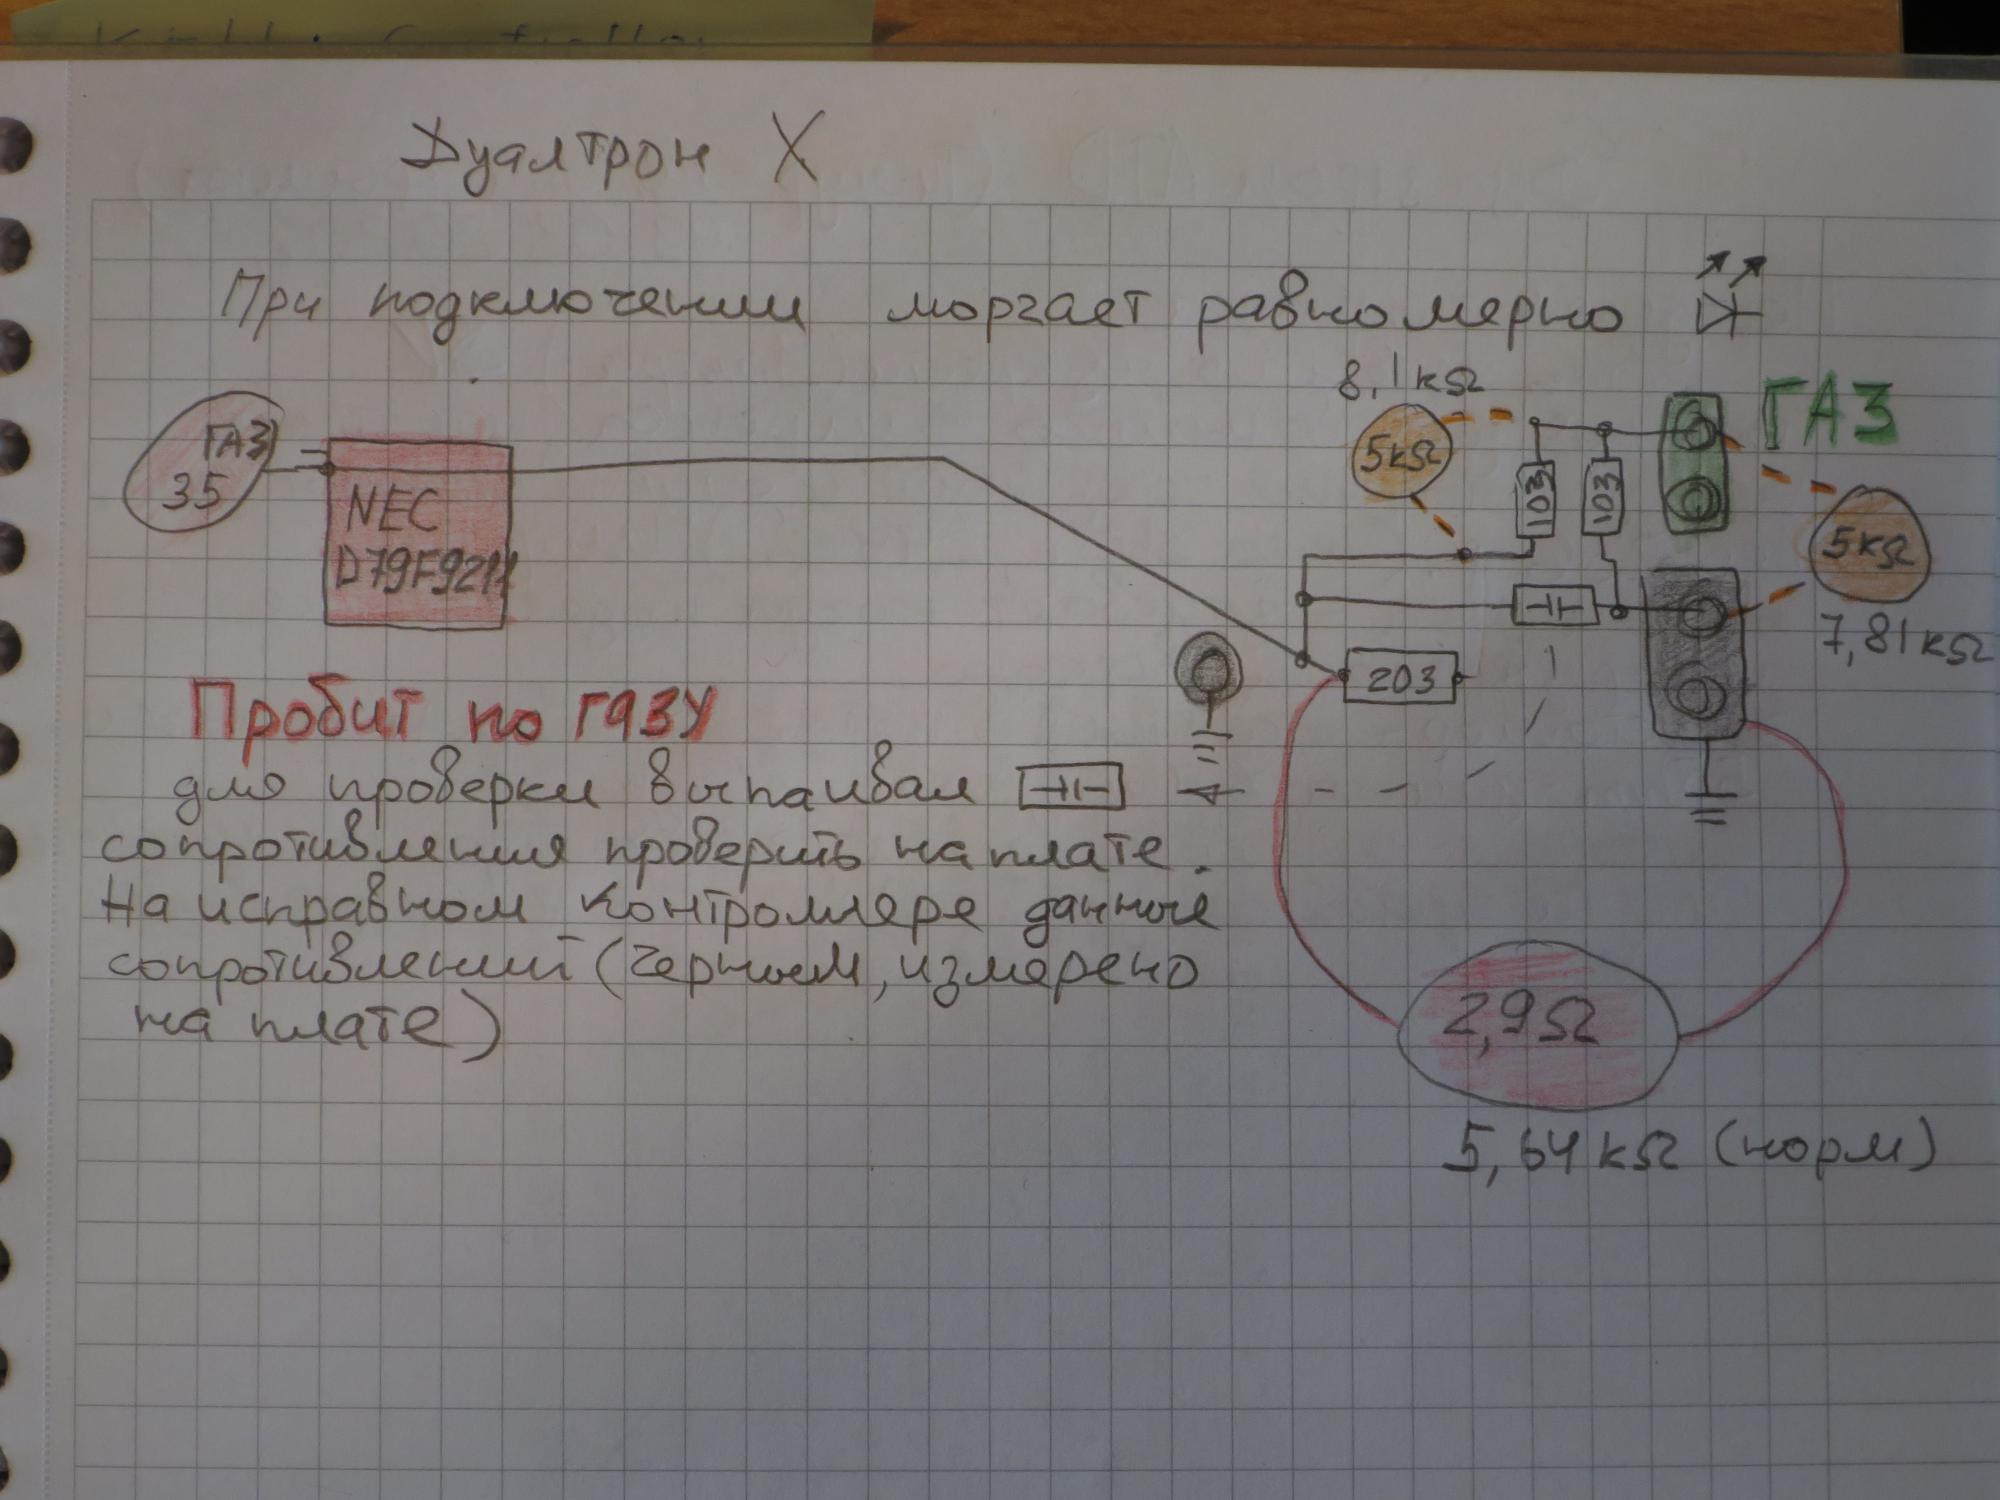 Дуалтрон X
При подключении моргает равномерно
8,1kΩ
ГАЗ
ГАЗ
35
5kΩ
103
103
NEC
D79F9211
5kΩ
7,81kΩ
203
Пробит по ГАЗУ
для проверки выпаивал
сопротивления проверить на плате.
На исправном контроллере данные
сопротивлений (черным, измерено
на плате)
2,9Ω
5,64kΩ (норм)